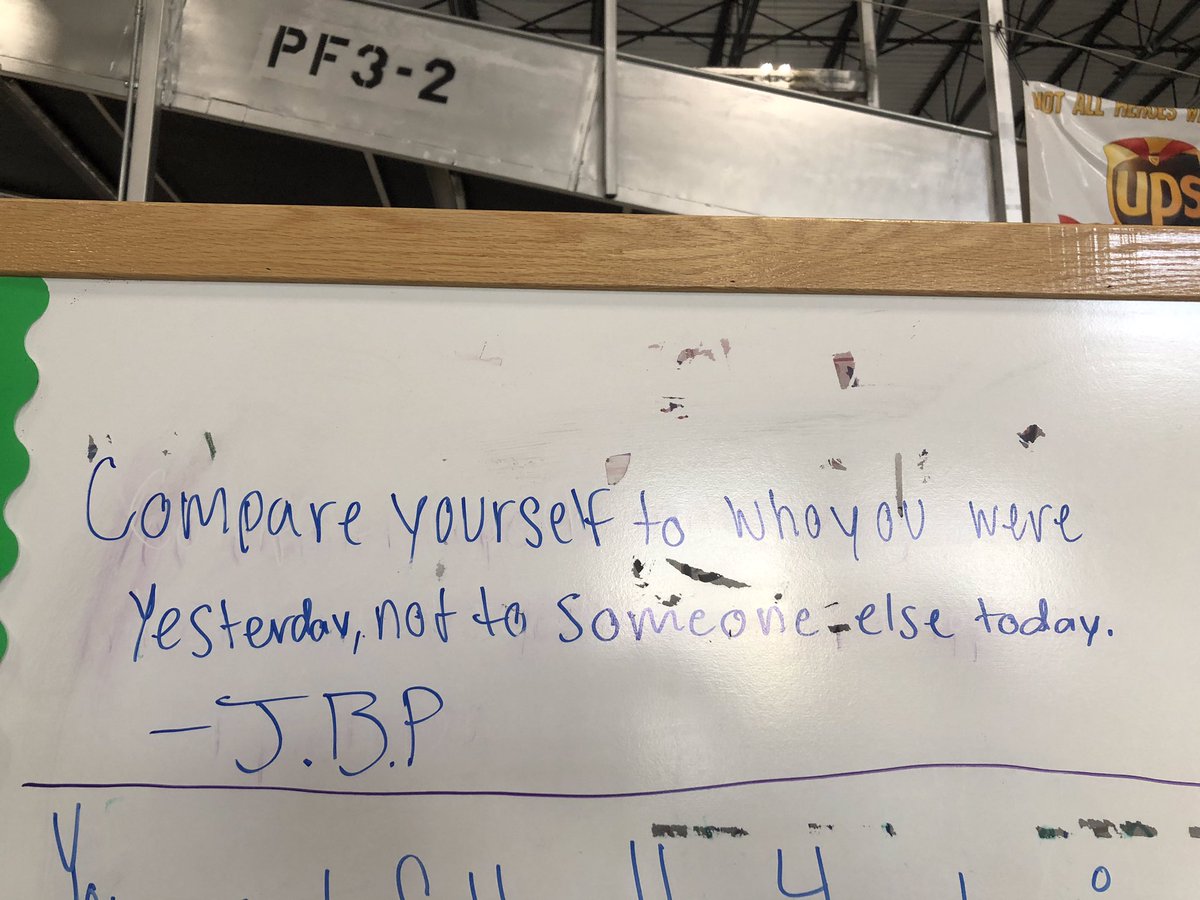 PF3-2
NOT ALL HEROES
ups
Compare yourself to who you were
Yesterday, not to someone else today.
- J.B.P